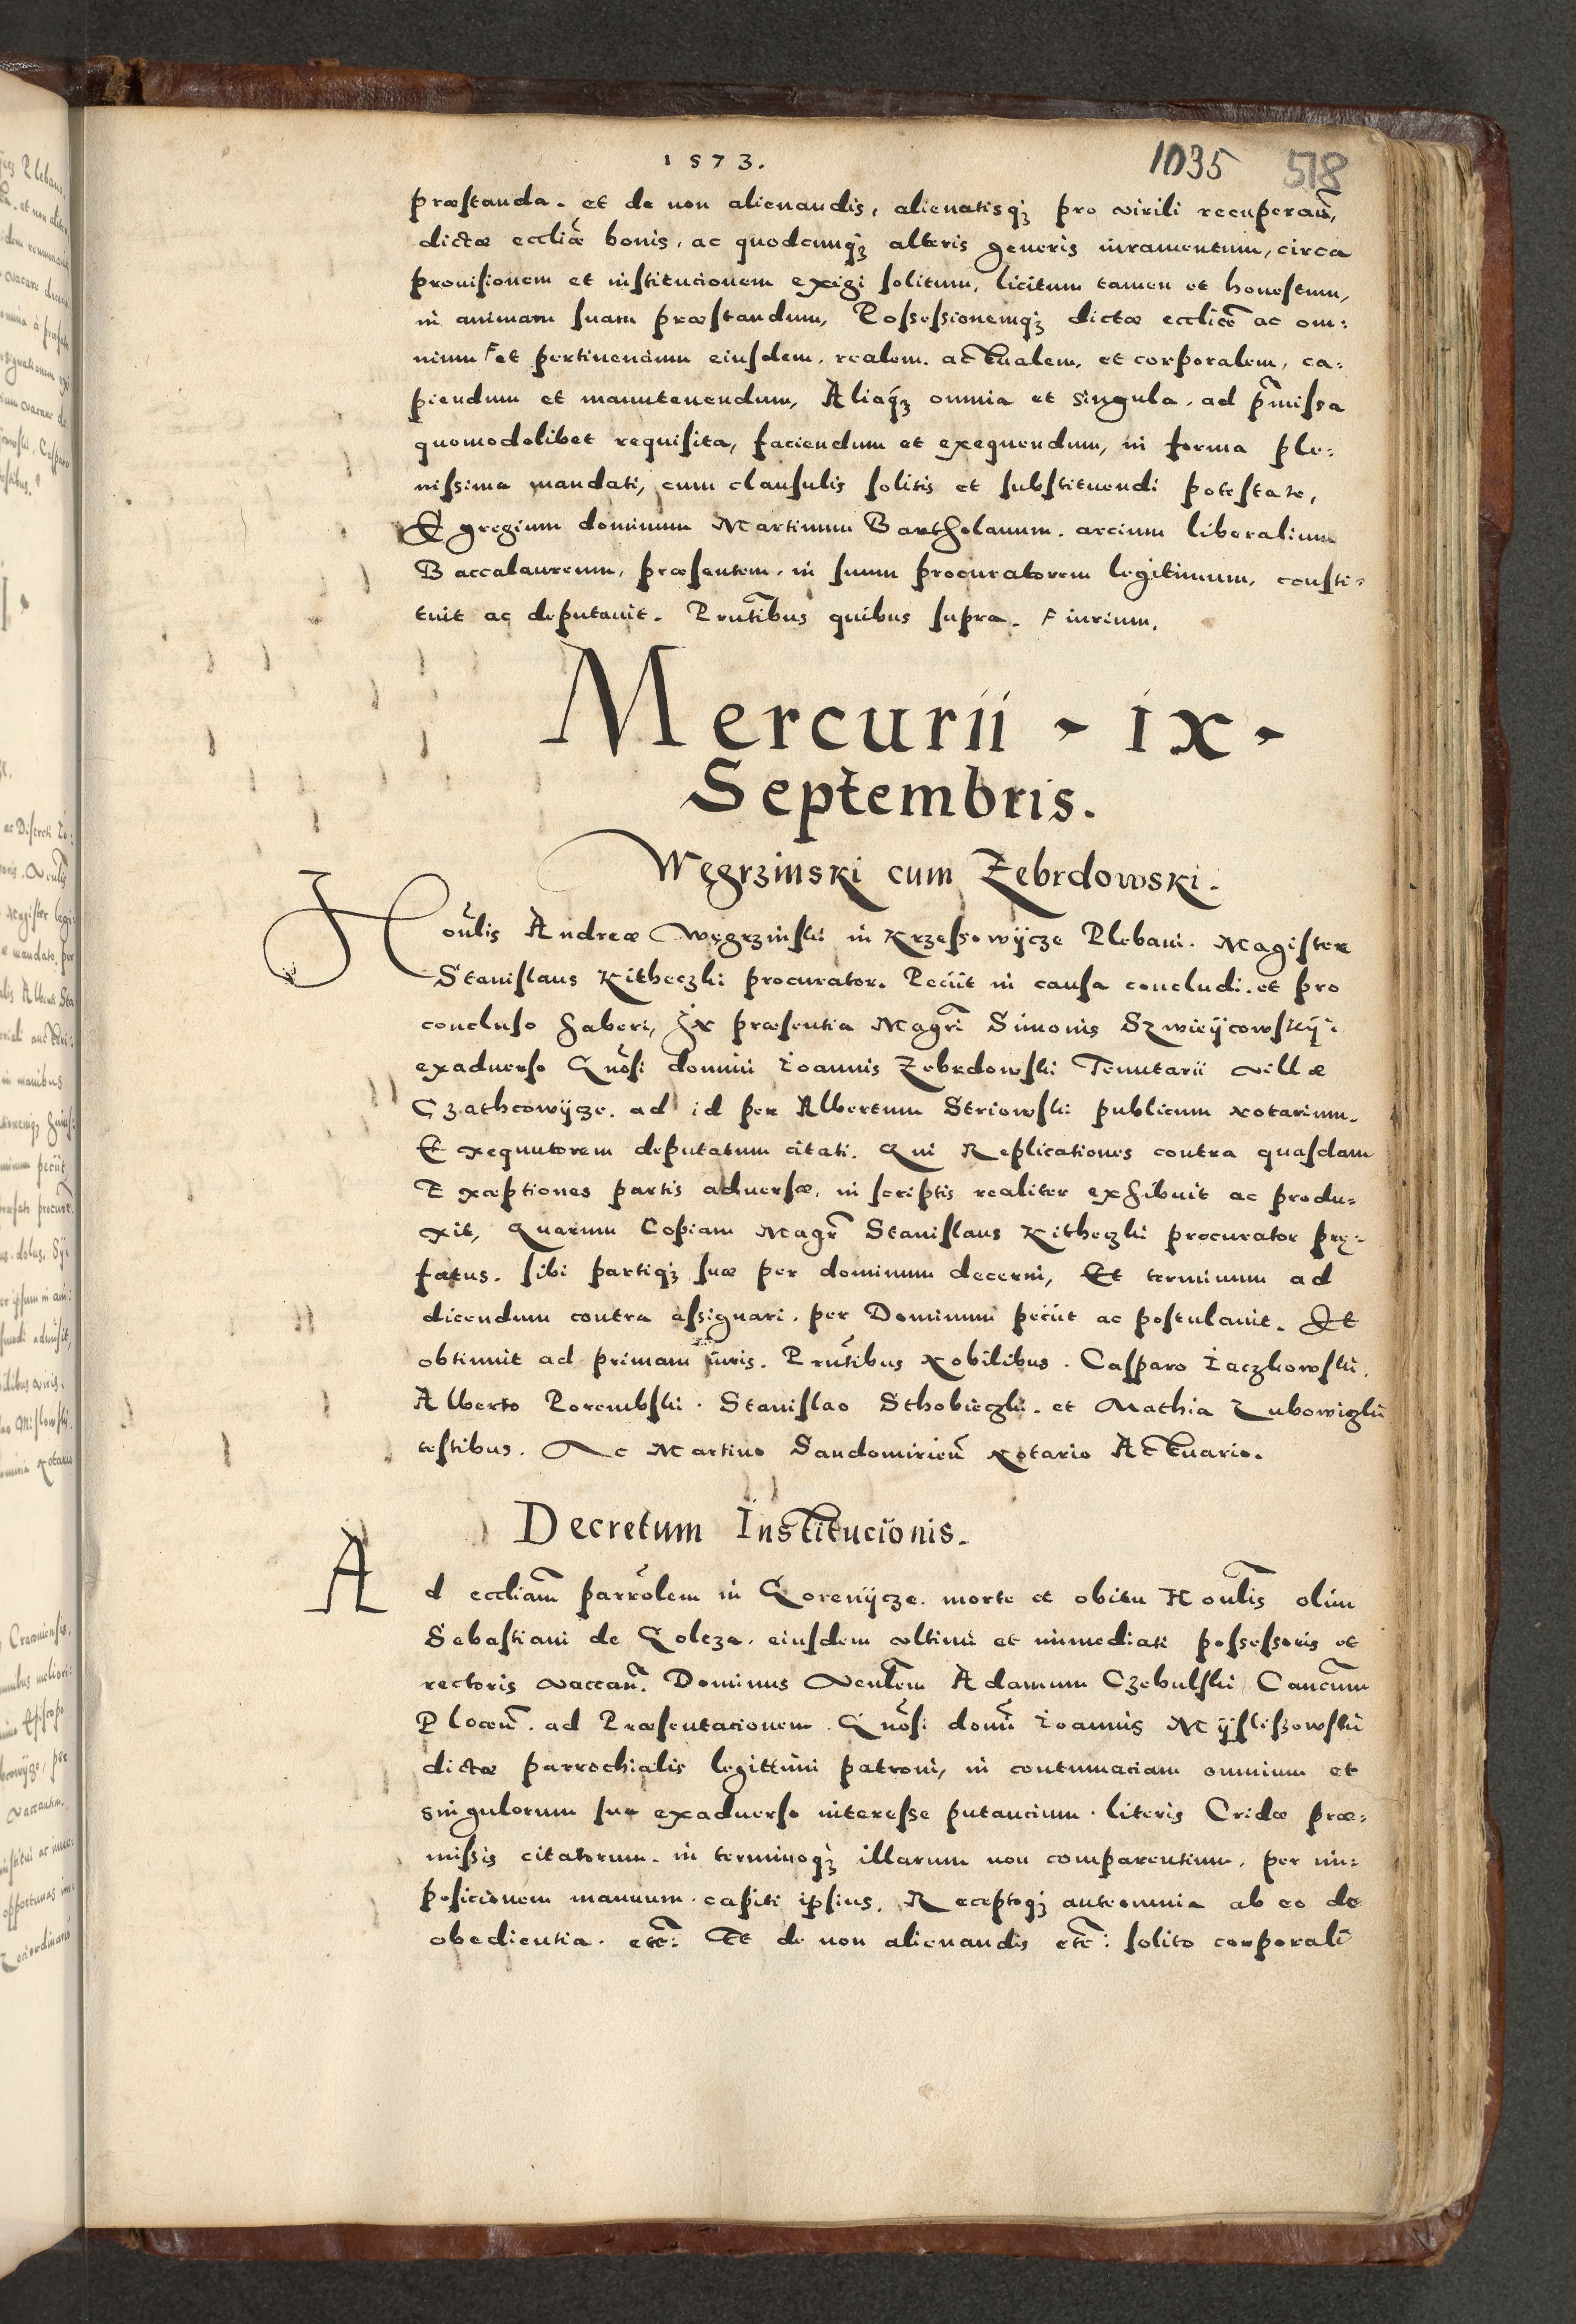 1573.
1035 518
præstanda. et de non alienandis, alienatisq₃ pro virili recuperañ,
dictæ eccliæ bonis, ac quodcunq₃ alteris generis iuramentum, circa
prouisionem et institucionem exigi solitum, licitum tamen et honestum,
in animam suam præstandum, Possessionemq₃ dictæ eccliæ ac om:
nium ꜰ et pertinencium eiusdem, realem. actualem, et corporalem, ca:
piendum et manutenendum, Aliaq₃ omnia et singula, ad p̃missa
quomodolibet requisita, faciendum et exequendum, in forma ple:
nissima mandati, cum clausulis solitis et substituendi potestate,
Egregium dominum Martinum Bartholanum. arcium liberalium
Baccalaureum, præsentem, in suum procuratorem legitimum, consti:
tuit ac deputauit. Prñtibus quibus supra. ꜰ iurium.
Mercurii - ix -
Septembris.
Węgrzinski cum Zebrdowski.
Hoñlis Andreæ Węgrzinski in Krzessowijcze Plebani. Magister
Stanislaus Kitheczki procurator. Peciit in causa concludi. et pro
concluso haberi, Ex præsentia Magr̃i Simonis Szwieijcowskij i
exaduerso Gñosi domini Ioannis Zebrdowski Tenutarii villæ
Czathcowijcze. ad id per Albertum Striowski publicum Notarium.
Exequutorem deputatum citati. Qui Replicationes contra quasdam
Exceptiones partis aduersæ, in scriptis realiter exhibuit ac produ:
xit, Quarum Copiam Magr̃ Stanislaus Kitheczki procurator prę:
fatus. sibi partiq₃ suæ per dominum decerni, Et terminum ad
dicendum contra assignari. per Dominum peciit ac postulauit. Et
obtinuit ad primam iuris. Prñtibus Nobilibus. Casparo Iaczkowski,
Alberto Porembski. Stanislao Sthobieczki. et Mathia Lubowiczki
testibus. Ac Martino Sandomirieñ Notario Actuario.
Decretum Institucionis.
Ad eccliam̃ parrõlem in Gorenijcze. morte et obitu Hoñlis olim
Sebastiani de Goleza. eiusdem vltimi et immediati possessoris et
rectoris vaccañ. Dominus Veñlem Adamum Czebulski Cañcum
Ploceñ. ad Præsentacionem. Gñosi domñ Ioannis Mijsliszowski
dictæ parrochialis legittimi patroni, in contumaciam omnium et
singulorum sua exaduerso interesse putancium. literis Cridæ præ:
missis citatorum. in terminoq₃ illarum non comparentium, per im:
posicionem manuum. capiti ipsius. Receptoq₃ anteomnia ab eo de
obedientia. etc̃: Et de non alienandis etc̃: solito corporali